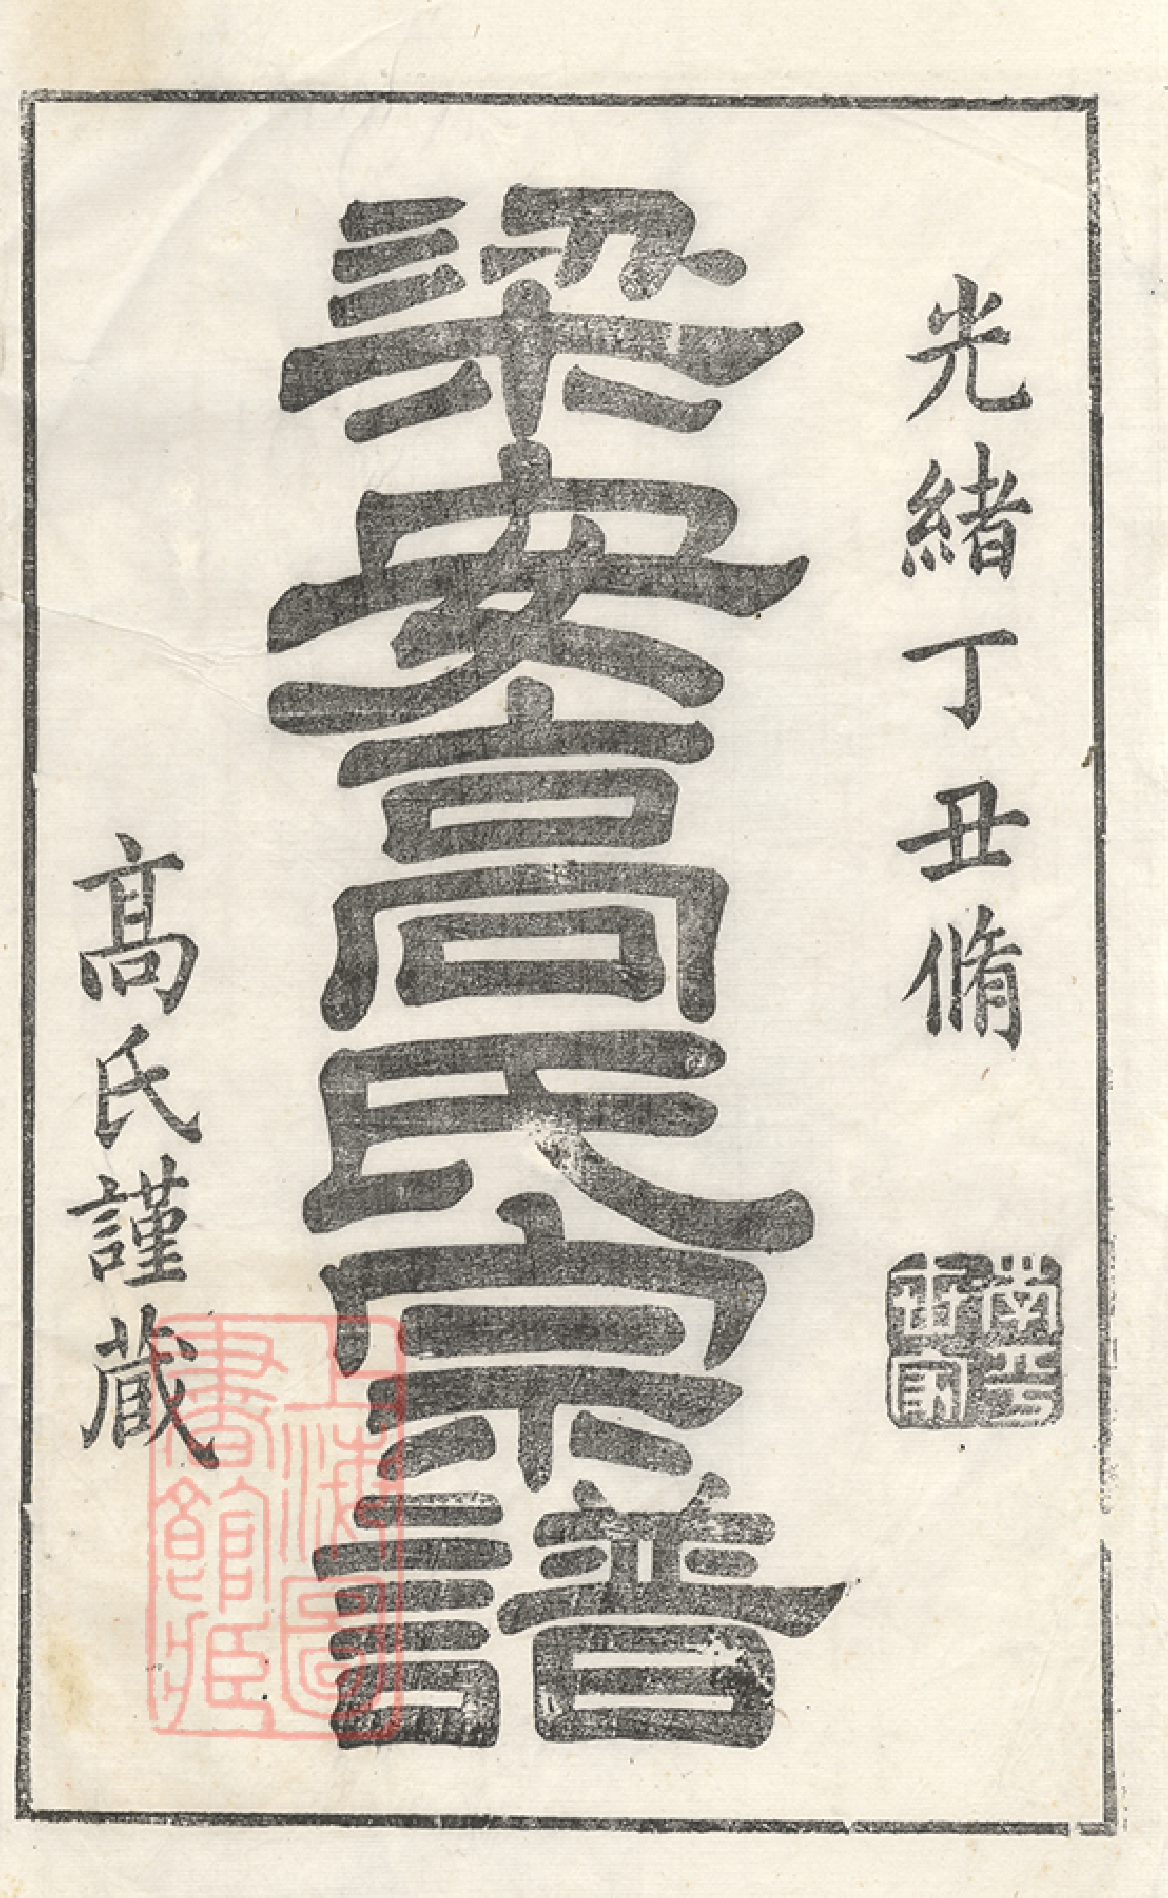 光緒丁丑脩
梁安高氏宗譜
高氏謹藏
上海圖書館藏